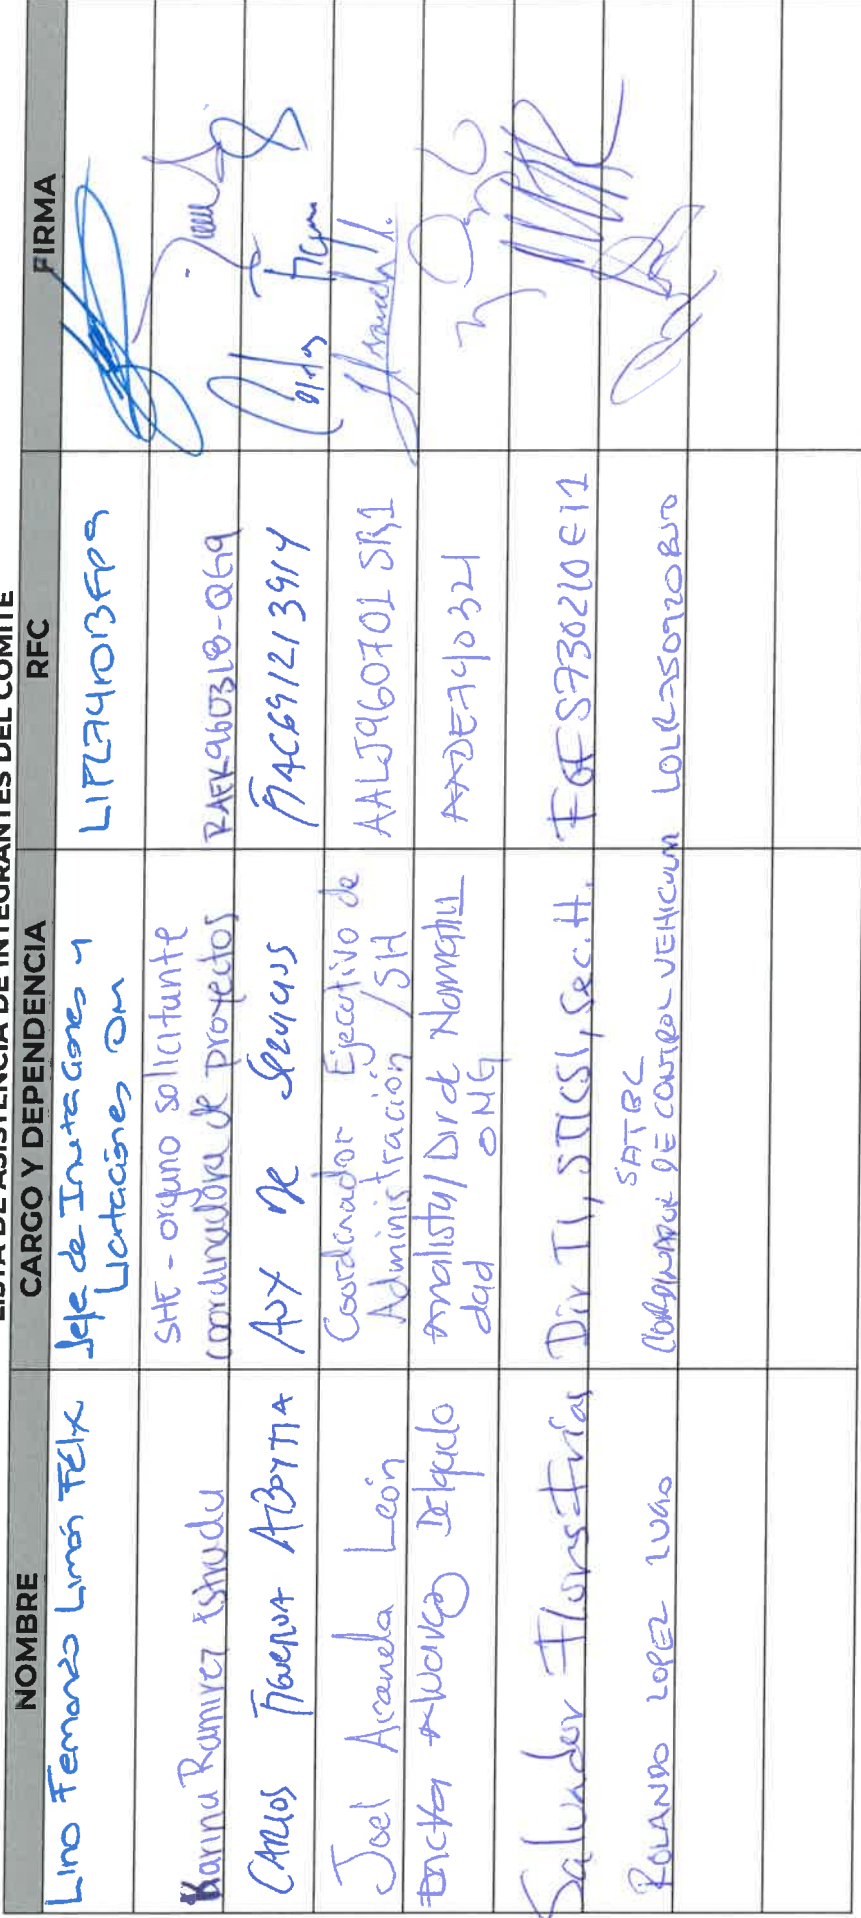 LISTA DE ASISTENCIA DE INTEGRANTES DEL COMITÉ
NOMBRE CARGO Y DEPENDENCIA RFC FIRMA
Lino Fernando Limón Félix Jefe de Invitaciones y
Licitaciones OM
SHE - organo solicitante
Karina Ramirez Estrada coordinadora de proyectos RAEK960318-QG9
CARLOS Figueroa ABOYTIA AUX DE Servicios FIAC691213914 Carlos Figueroa
Joel Araneda León Coordinador Ejecutivo de
Administración /SH AALJ960701SR1
Alvarez Delgado analista/ Dir de Normativi
dad OMG AADE740321
Salvador Flores Frías Dir TI, STICSI, Sec. H. FOFS730210EI1
SATBC
ROLANDO LOPEZ LUGO COORDINADOR DE CONTROL VEHICULAR